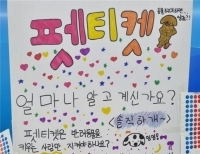 페티켓
얼마나 알고 계신가요?
(솔직하개~)
페티켓은 반려동물을
키우는 사람만 지켜야하나요?